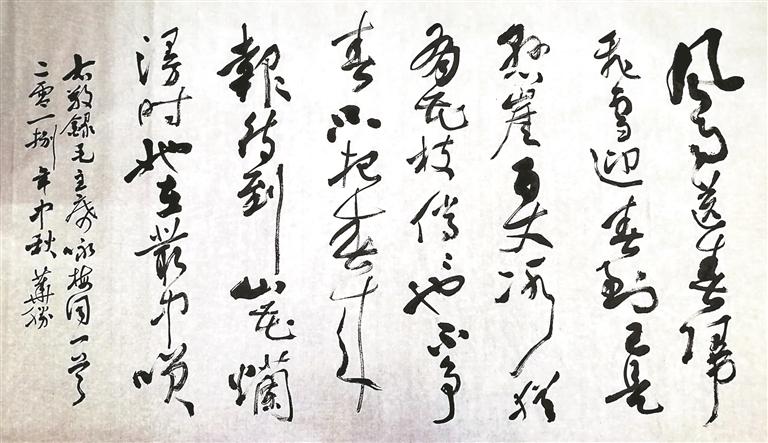 风雨送春歸
飛雪迎春到已是
悬崖百丈冰猶
有花枝俏々也不争
春只把春来
報待到山花爛
漫时她在叢中笑
右敬録毛主席咏梅词一首
二零一捌年中秋 華勝